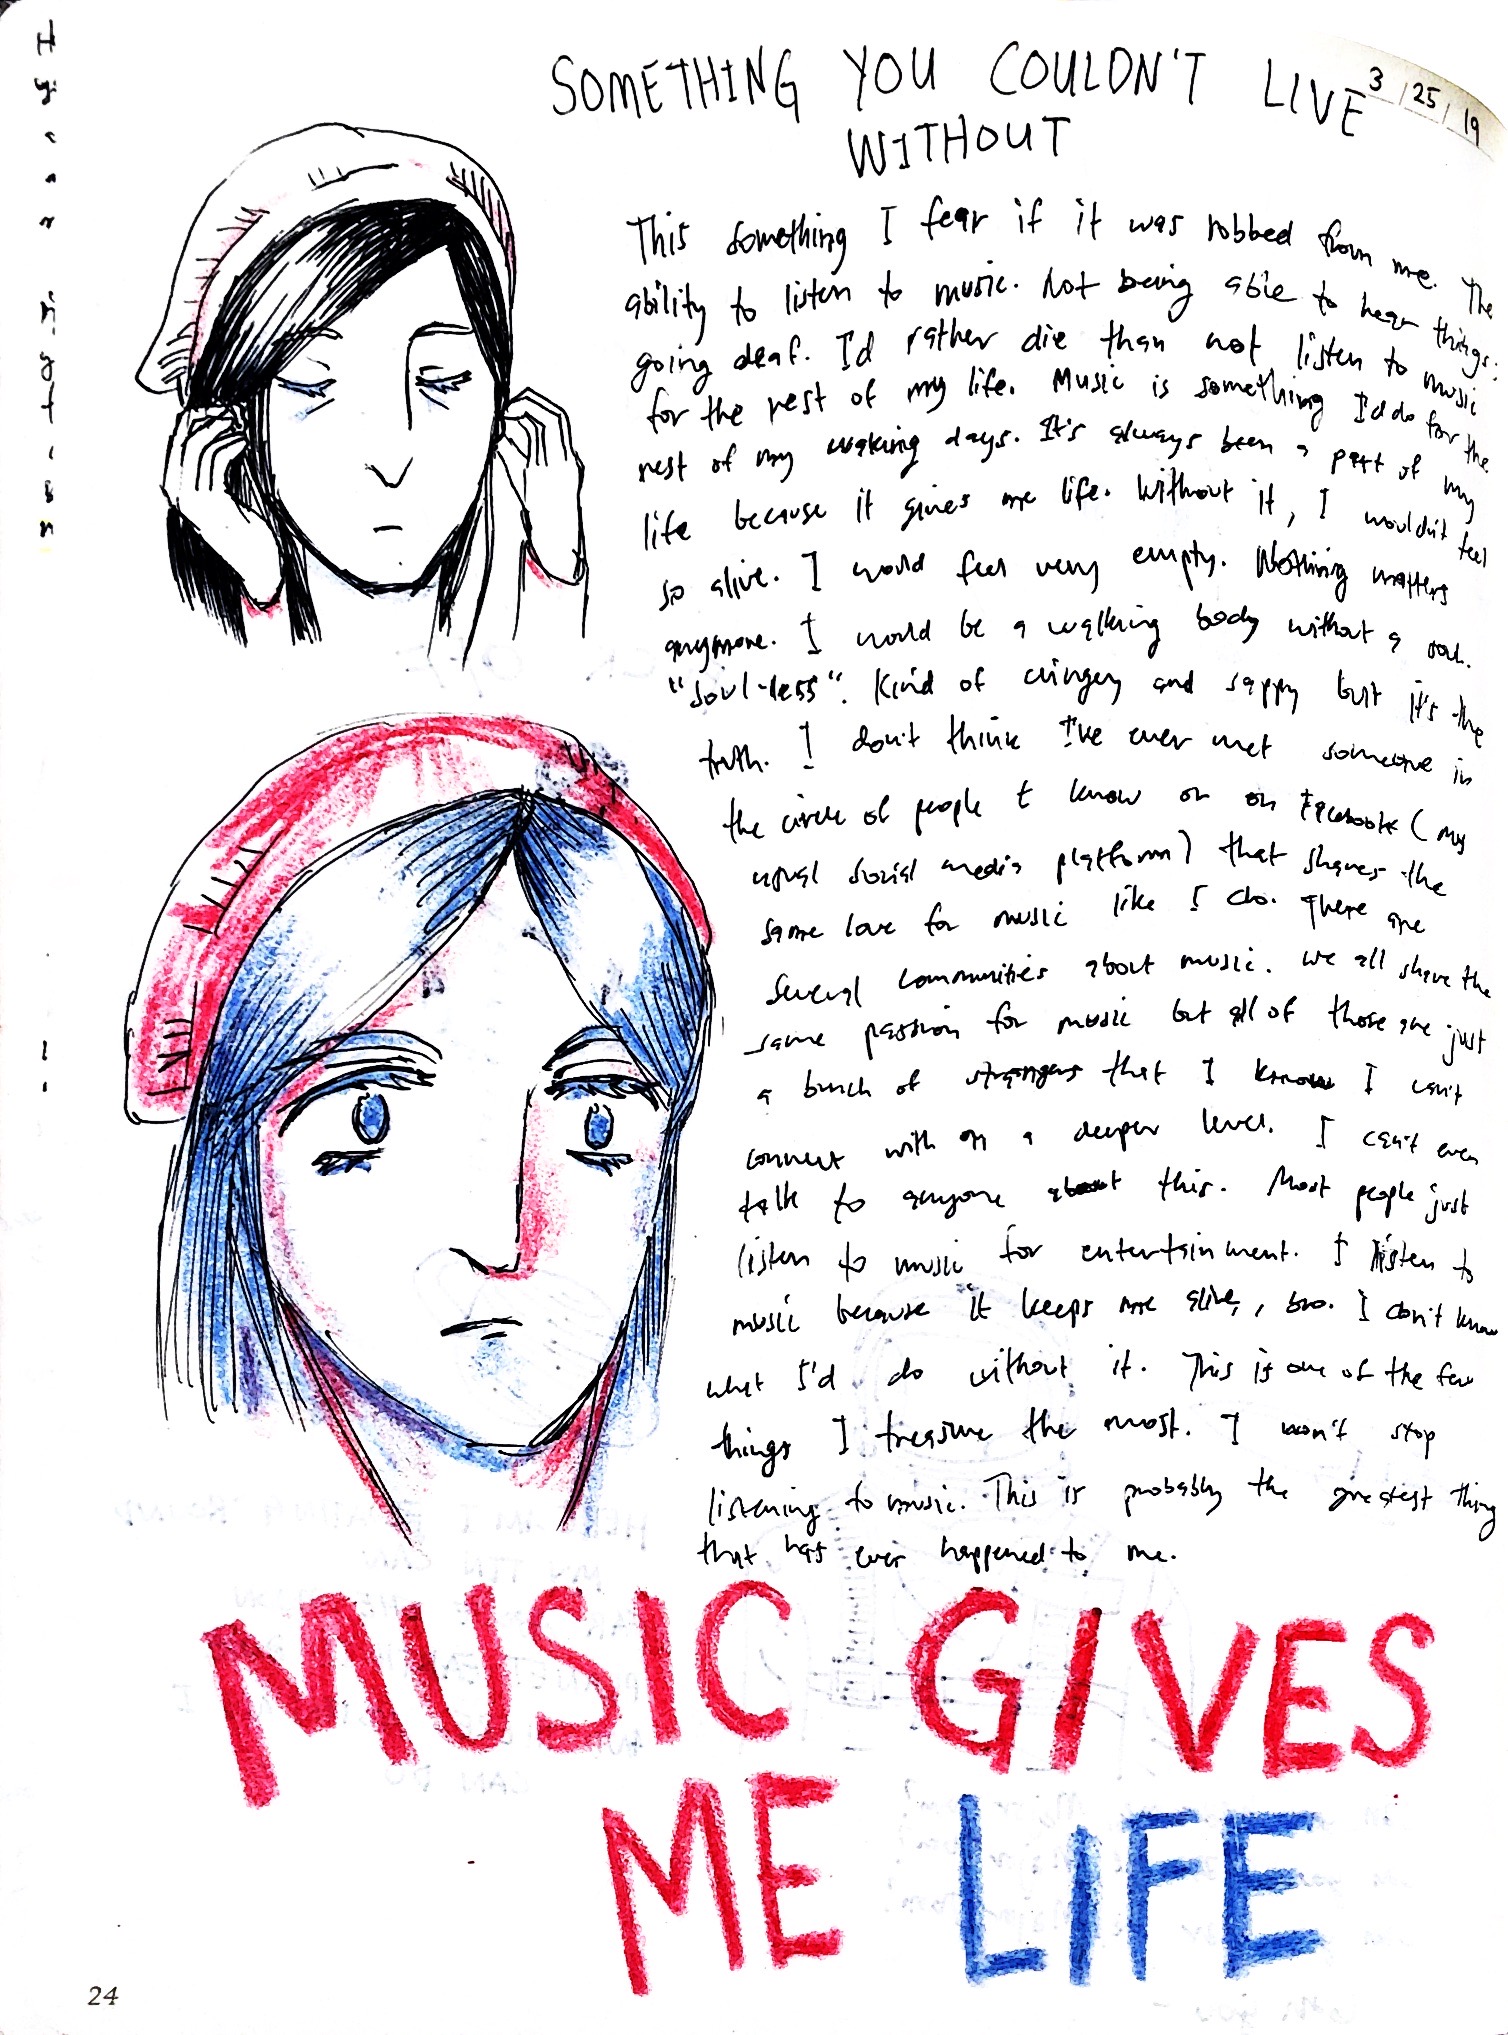 SOMETHING YOU COULDN'T LIVE
WITHOUT
3/25/19
This something I fear if it was robbed from me. The
ability to listen to music. Not being able to hear things:
going deaf. I'd rather die than not listen to music
for the rest of my life. Music is something I'd do for the
rest of my waking days. It's always been a part of my
life because it gives me life. Without it, I wouldn't feel
so alive. I would feel very empty. Nothing matters
anymore. I would be a walking body without a soul.
"soul-less". Kind of cringey and sappy but it's the
truth. I don't think I've ever met someone in
the circle of people I know or on Facebook (my
usual social media platform) that shares the
same love for music like I do. There are
several communities about music. We all share the
same passion for music but all of those are just
a bunch of strangers that I know I can't
connect with on a deeper level. I can't even
talk to anyone about this. Most people just
listen to music for entertainment. I listen to
music because it keeps me alive, bro. I don't know
what I'd do without it. This is one of the few
things I treasure the most. I won't stop
listening to music. This is probably the greatest thing
that has ever happened to me.
MUSIC GIVES
ME LIFE
24